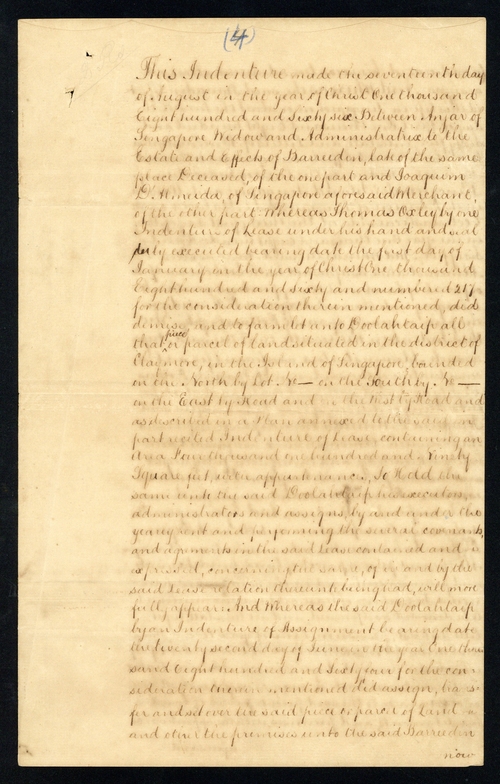 (4)
This Indenture made the seventeenth day
of August in the year of Christ One thousand
Eight hundred and Sixty six Between Anjar of
Singapore Widow and Administratrix to the
Estate and Effects of Barruden, late of the same
place Deceased, of the one part and Joaquim
D'Almeida, of Singapore aforesaid Merchant,
of the other part Whereas Thomas Oxley by one
Indenture of Lease under his hand and seal
duly executed bearing date the first day of
January in the year of Christ One thousand
Eight hundred and Sixty and numbered 217
for the consideration therein mentioned, did
demise, and to farm let unto Doolahtaip all
that piece or parcel of land situated in the district of
Claymore, in the Island of Singapore, bounded
on the North by Lot No — on the South by No —
on the East by Road and on the West by Road and
as described in a Plan annexed to the said in
part recited Indenture of Lease, containing an
area Four thousand one hundred and Ninety
Square feet, with appurtenances, To Hold the
same unto the said Doolahtaip his executors,
administrators and assigns, by and under the
yearly rent and performing the several covenants,
and agreements in the said Lease contained and
expressed, concerning the same, of it and by the
said Lease relation thereunto being had, will more
fully appear And Whereas the said Doolahtaip
by an Indenture of Assignment bearing date
the twenty second day of June in the year One thou
sand Eight hundred and Sixty four for the con
sideration therein mentioned did assign, trans
fer and set over the said piece or parcel of Land
and other the premises unto the said Barruden
now